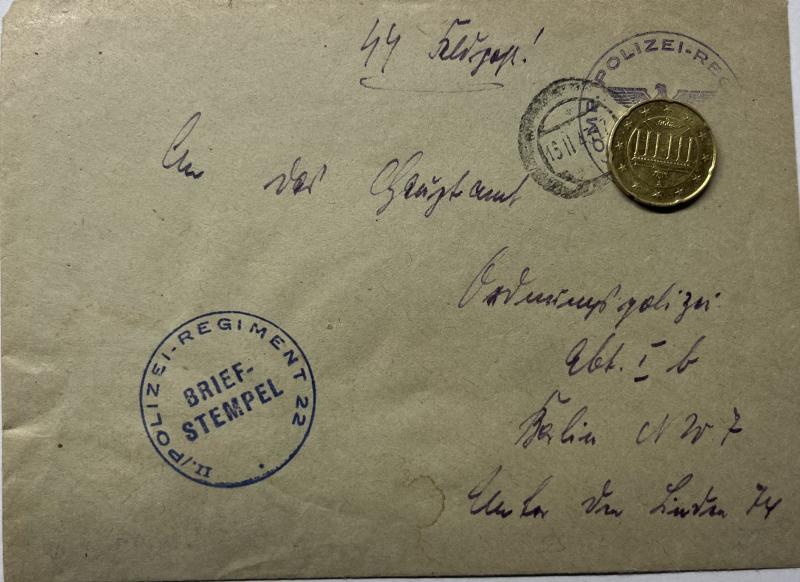 44 Feldpost!
OMP. POLIZEI-REG
An das Hauptamt
Ordnungspolizei
Abt. I b
Berlin NW 7
Unter den Linden 74
II./POLIZEI-REGIMENT 22
BRIEF-
STEMPEL